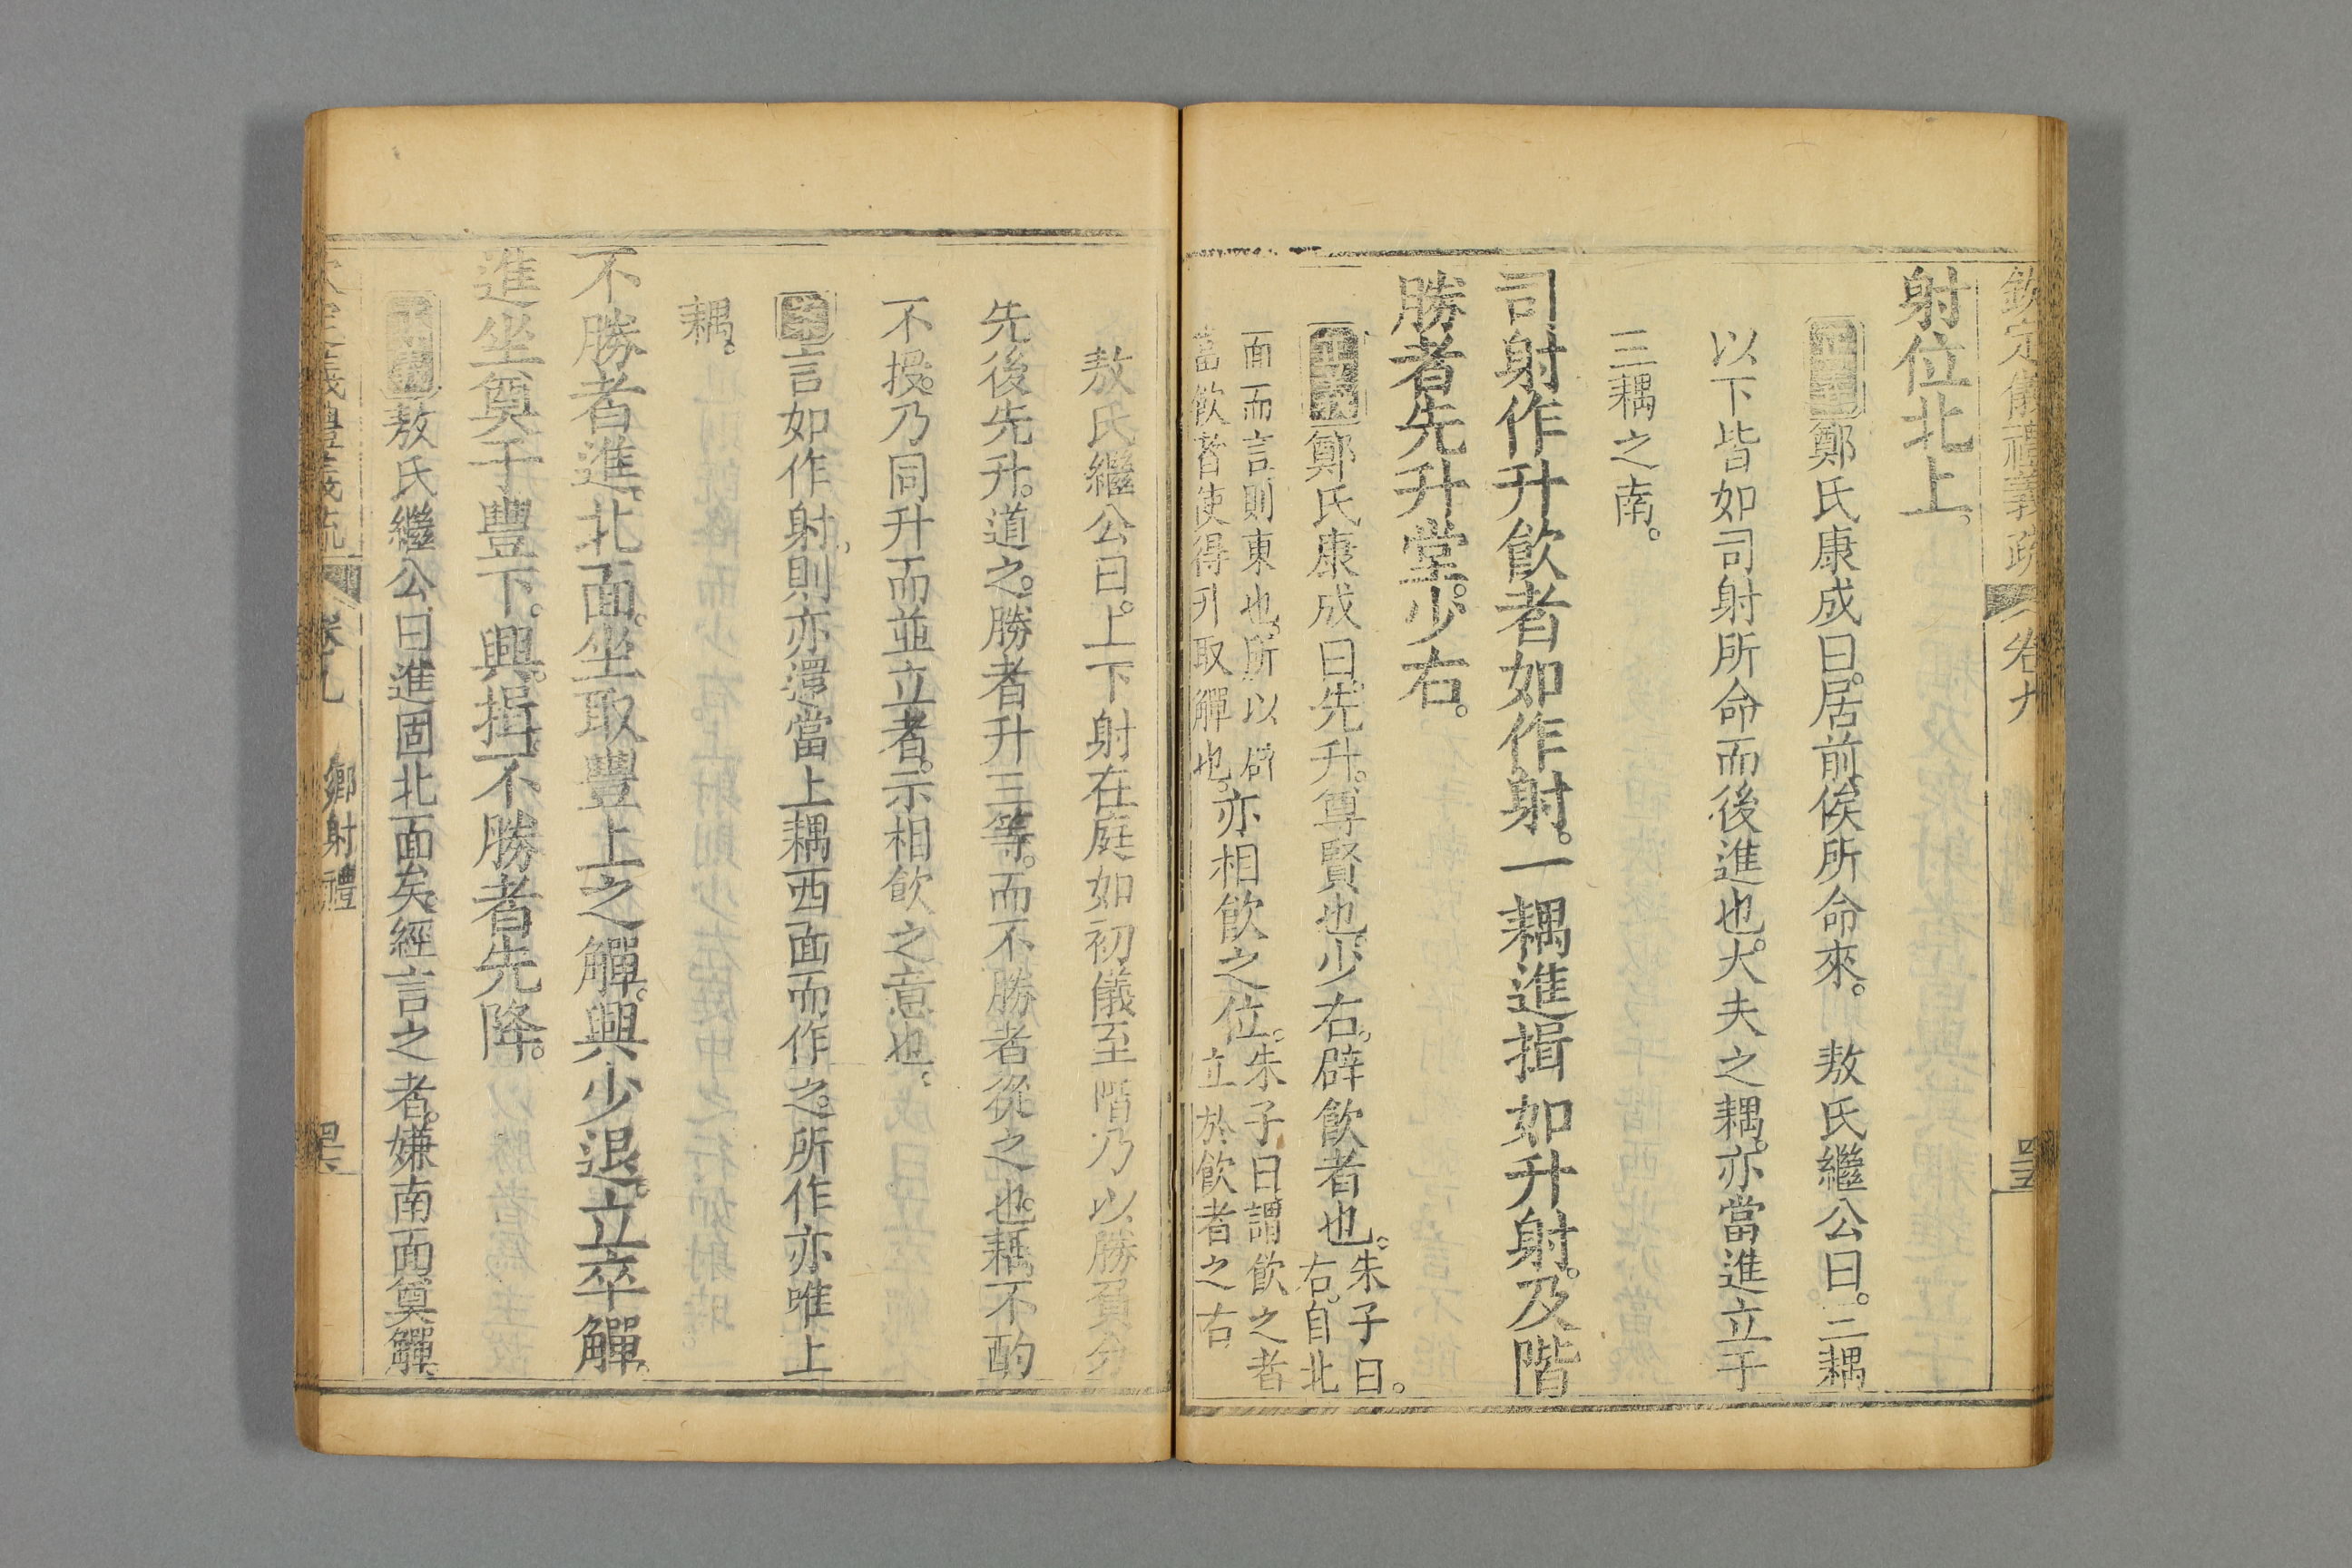 欽定儀禮義疏 卷九
射位北上。
正義鄭氏康成曰。居前。俟所命來。 敖氏繼公曰。三耦
以下皆如司射所命而後進也。大夫之耦。亦當進立于
三耦之南。
司射作升飲者如作射。一耦進揖如升射。及階
勝者先升堂。少右。
正義鄭氏康成曰。先升。尊賢也。少右。辟飲者也。朱子曰。
右。自北
面而言則東也。所以辟
當飲者使得升取觶也。亦相飲之位。朱子曰謂飲之者
立於飲者之右
敖氏繼公曰。上下射在庭如初儀至階乃以勝負分
先後先升。道之。勝者升三等。而不勝者從之也。耦不酌
不授。乃同升而並立者。示相飲之意也。
案言如作射。則亦還當上耦西面而作之。所作亦唯上
耦。
不勝者進。北面。坐取豐上之觶。興。少退。立卒觶。
進坐奠于豐下。興。揖。不勝者先降。
敖氏繼公曰。進固北面矣。經言之者。嫌南面奠觶。
欽定儀禮義疏 卷九 鄉射禮